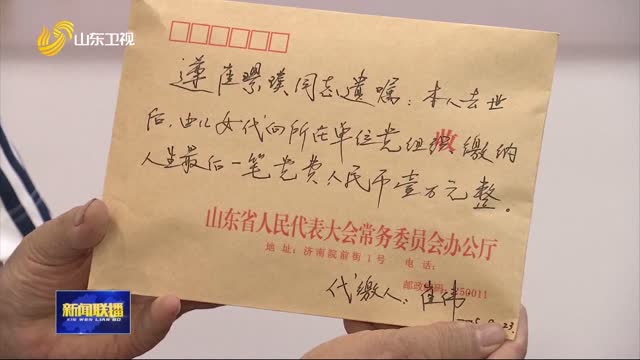 山东卫视
遵崔景璞同志遗嘱：本人去世
后，由儿女代向所在单位党组织缴纳
人生最后一笔党费人民币壹万元整。
山东省人民代表大会常务委员会办公厅
地 址：济南院前街1号 电 话：
邮政编码：250011
代缴人：崔伟
新闻联播
XIN WEN LIAN BO